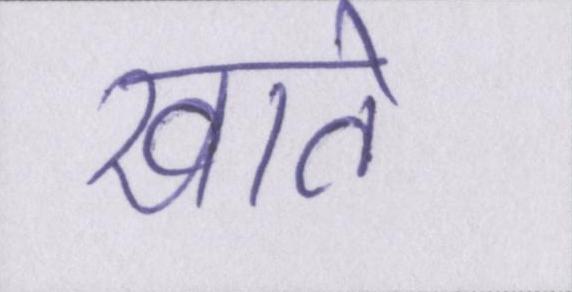 खाते